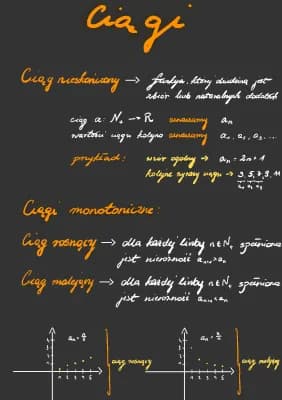 Ciągi
Ciąg nieskończony → funkcja, której dziedziną jest
zbiór liczb naturalnych dodatnich
ciąg a: N₊ → R oznaczamy aₙ
wartości ciągu kolejno oznaczamy a₁, a₂, a₃...
przykład: wzór ogólny → aₙ = 2n+1
kolejne wyrazy ciągu → 3, 5, 7, 9, 11
a₁ a₂ a₃
Ciągi monotoniczne:
Ciąg rosnący → dla każdej liczby n∈N₊ spełniona
jest nierówność aₙ₊₁ > aₙ
Ciąg malejący → dla każdej liczby n∈N₊ spełniona
jest nierówność aₙ₊₁ < aₙ
ciąg rosnący
1 2 3 4 5
ciąg malejący
1 2 3 4 5